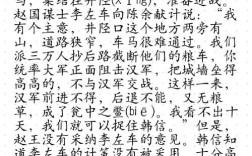 马，集结在井陉(xíng)，准备迎战。
赵国谋士李左车向陈余献计说：“我
有个主意，井陉口这个地方两旁有
山，道路狭窄，车马很难通过。我们
派三万人抄后路截断他们的粮车，你
统率大军正面阻击汉军，把城垒得
高高的，不与汉军交战。这样一来，
汉军前进不得，后退不能，又无粮
草，成了瓮中之鳖(biē)。我看不出十
天，我们就可以捉住韩信。”但是，
赵王没有采纳李左车的意见。韩信知
道李左车的计策没有被采用，十分高